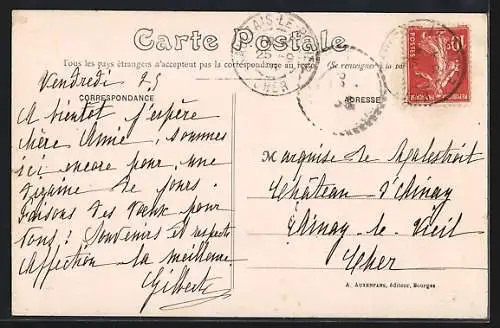 Carte Postale
Tous les pays étrangers n'acceptent pas la correspondance au recto
(Se renseigner à la
Vendredi 25
CORRESPONDANCE
ADRESSE
A bientôt j'espère
chère Amie, sommes
ici encore pour une
dizaine de jours.
Faisons des vœux pour
Vous! Souvenirs et respects
Affection la meilleure
Gilberte
CHER
10
Marquise de Malestroit
Château d'Ainay
Ainay-le-Vieil
Cher
A. AUXENFANS, éditeur, Bourges